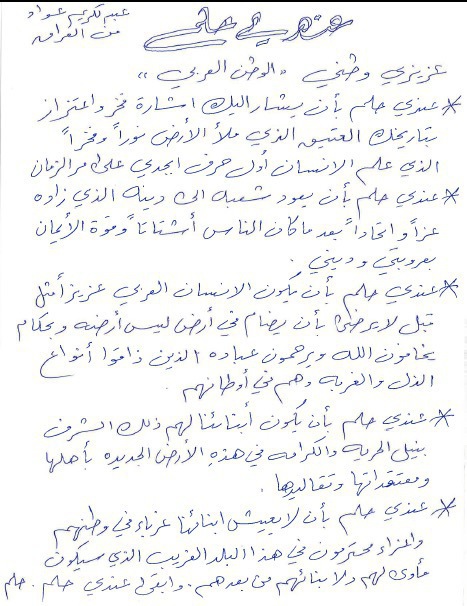 عبد الكريم عواد
من العراق
عندي حلم
عزيزي وطني "الوطن العربي"
* عندي حلم بأن يشار اليك اشارة فخر واعتزاز
بتاريخك العتيق الذي ملأ الأرض نوراً وفخراً
الذي علم الانسان أول حرف ابجدي على مر الزمان
* عندي حلم بأن يعود شعبه الى دينه الذي زاده
عزاً واتحاداً بعد ما كان الناس أشتاتاً وقوة الأيمان
بعروبتي وديني .
* عندي حلم بأن يكون الانسان العربي عزيز أمثل
قبل لا يرضى بأن يضام في أرض ليس أرضه وبحكام
يخافون الله ويرحمون عباده الذين ذاقوا أنواع
الذل والغربه وهم في أوطانهم .
* عندي حلم بأن يكون أبنائنا لهم ذلك الشرف
بنيل الحريه والكرامه في هذه الأرض الجديده بأهلها
ومعتقداتها وتقاليدها .
* عندي حلم بأن لا يعيش ابنائنا غرباء في وطنهم
واعزاء محترمون في هذا البلد الغريب الذي سيكون
مأوى لهم ولابنائهم من بعدهم . وابقى عندي حلم . حلم